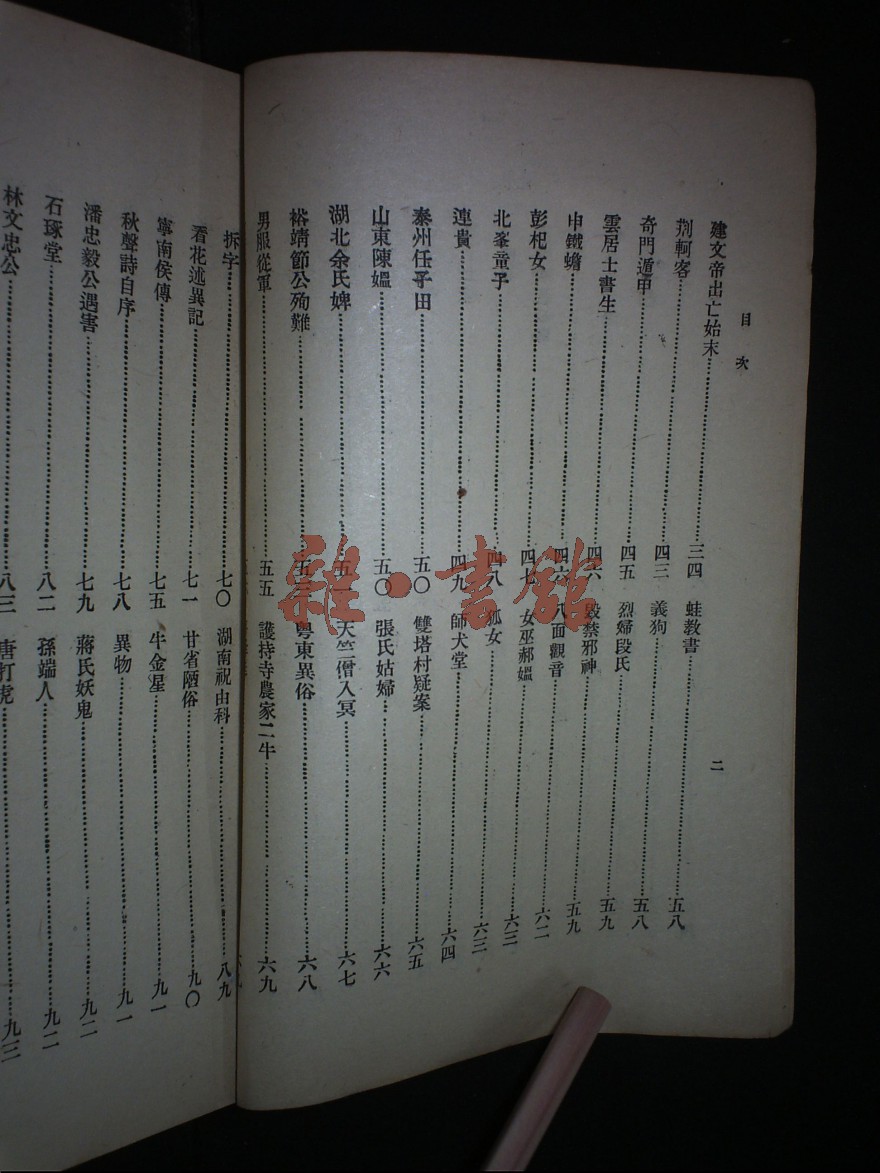 目次
二
建文帝出亡始末……三四
荆軻客……四三
奇門遁甲……四五
雲居士書生……四六
申鐵蟾……四六
彭杞女……四七
北峯童子……四八
連貴……四九
泰州任子田……五〇
山東陳媼……五〇
湖北余氏婢……五一
裕靖節公殉難……五
男服從軍……五五
蛙教書……五八
義狗……五八
烈婦段氏……五九
毀禁邪神……五九
八面觀音……六二
女巫郝媼……六三
狐女……六三
師犬堂……六四
雙塔村疑案……六五
張氏姑婦……六六
天竺僧入冥……六七
粵東異俗……六八
護持寺農家二牛……六九
拆字……七〇
看花述異記……七一
寧南侯傳……七五
秋聲詩自序……七八
潘忠毅公遇害……七九
石琢堂……八二
林文忠公……八三
湖南祝由科……八九
甘省陋俗……九〇
牛金星……九一
異物……九一
蔣氏妖鬼……九二
孫端人……九二
唐打虎……九三
雜·書館